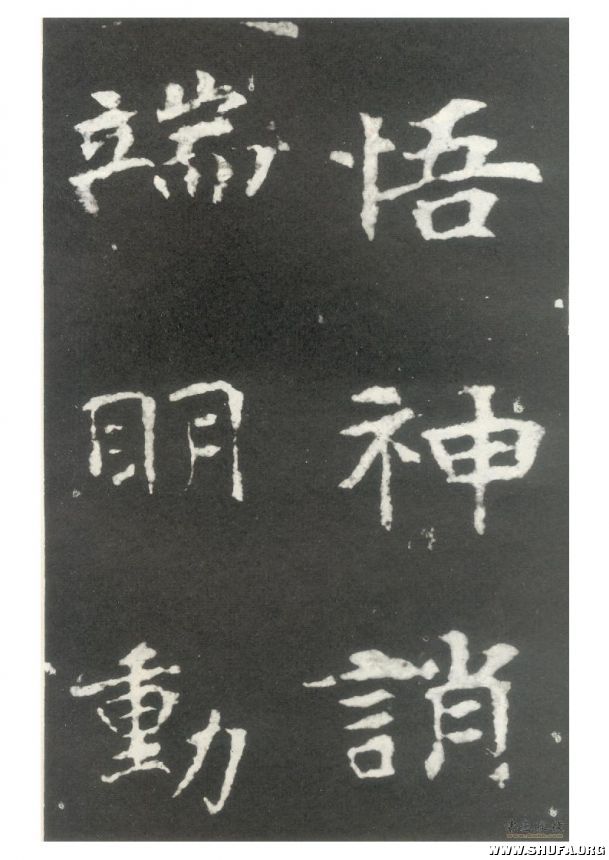 悟神誚
端眀動
WWW.SHUFA.ORG